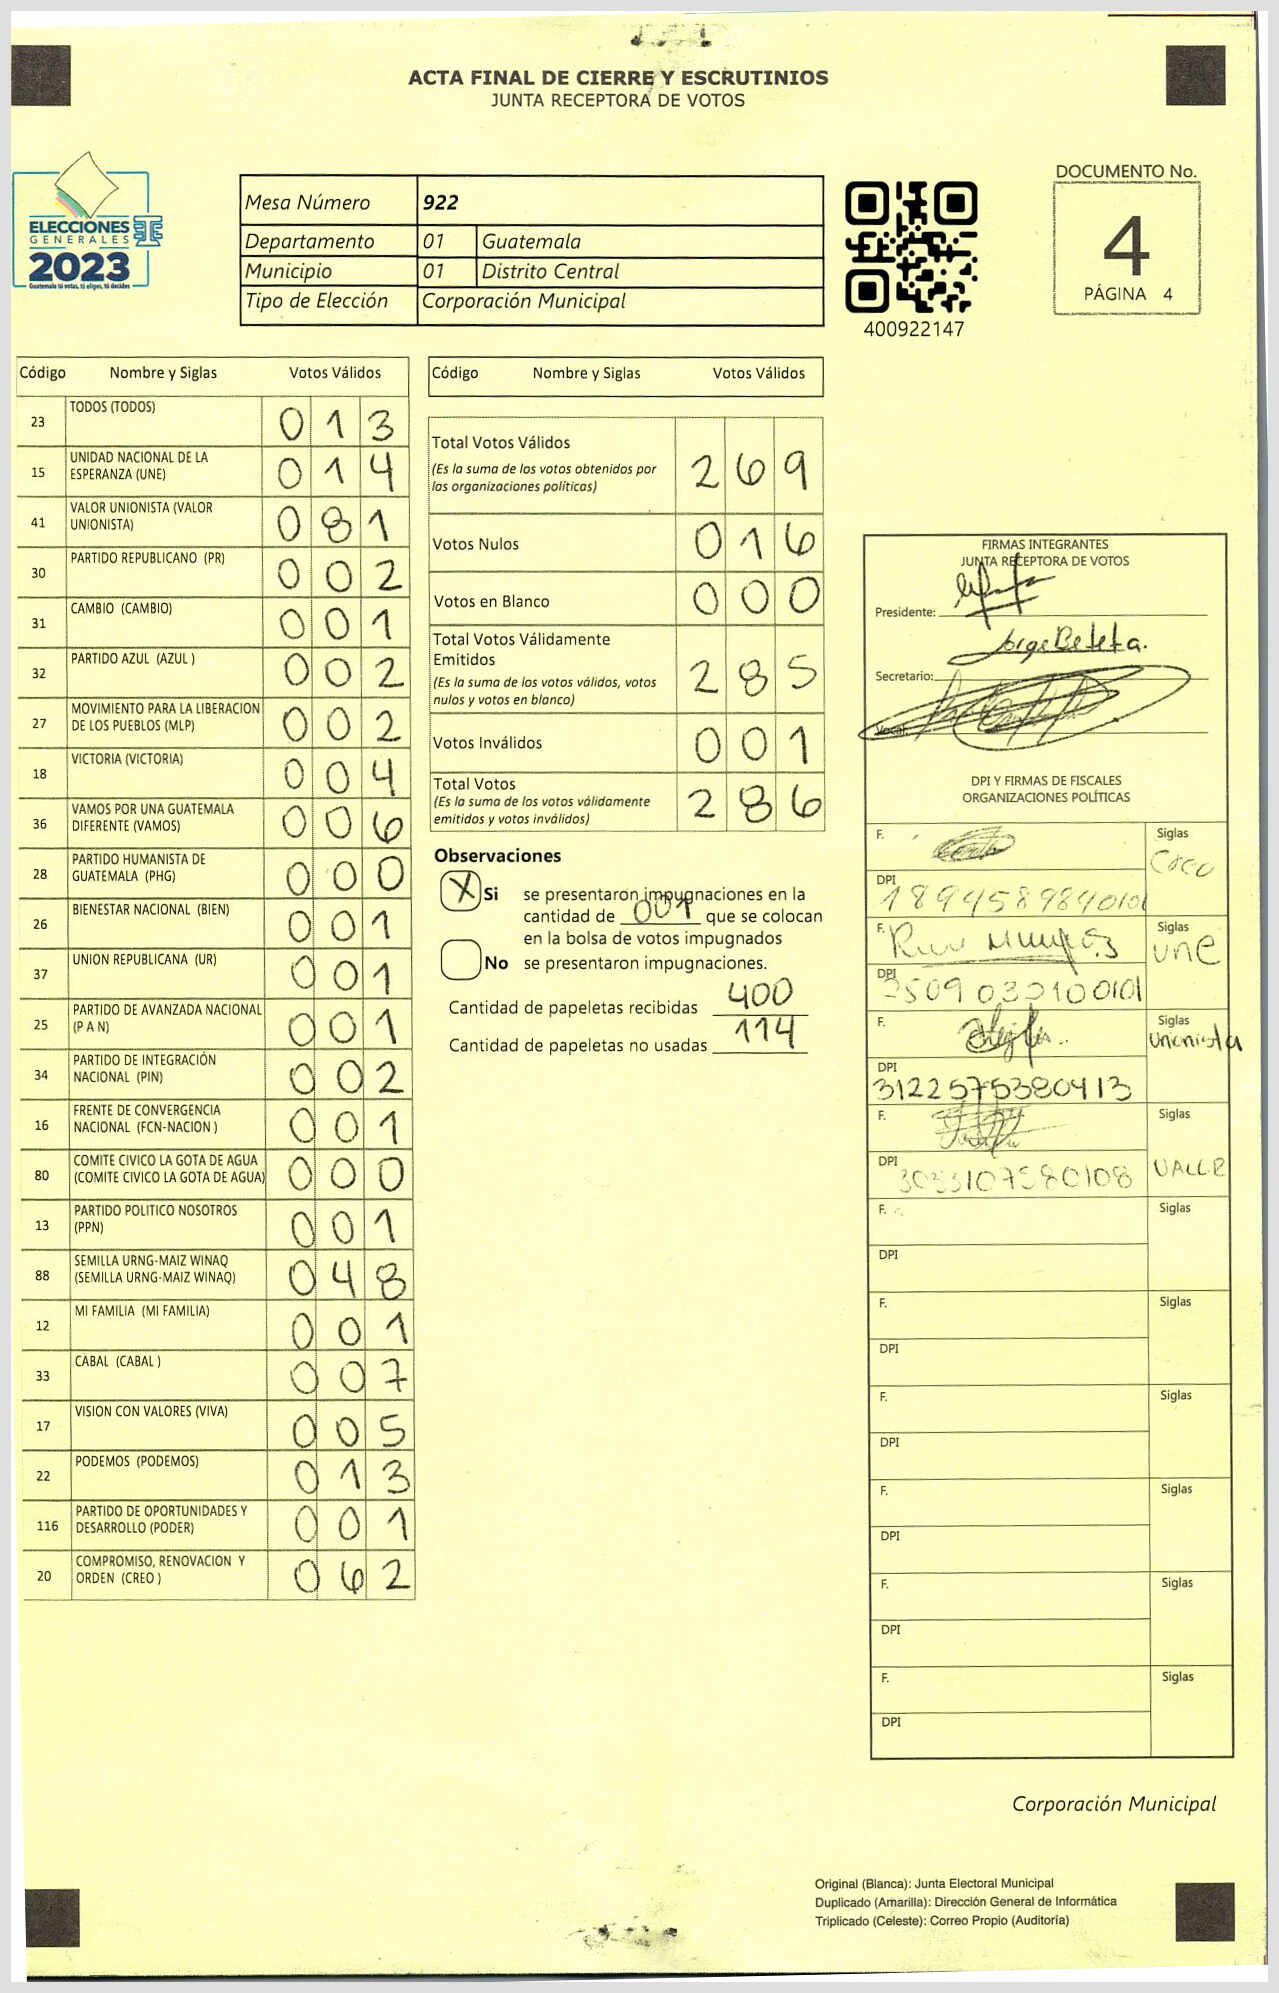 ACTA FINAL DE CIERRE Y ESCRUTINIOS
JUNTA RECEPTORA DE VOTOS
ELECCIONES
GENERALES
2023
Guatemala tú votas, tú eliges, tú decides
Mesa Número 922
Departamento 01 Guatemala
Municipio 01 Distrito Central
Tipo de Elección Corporación Municipal
400922147
DOCUMENTO No.
4
PÁGINA 4
Código Nombre y Siglas Votos Válidos
23 TODOS (TODOS) 0 1 3
15 UNIDAD NACIONAL DE LA
ESPERANZA (UNE) 0 1 4
41 VALOR UNIONISTA (VALOR
UNIONISTA) 0 8 1
30 PARTIDO REPUBLICANO (PR) 0 0 2
31 CAMBIO (CAMBIO) 0 0 1
32 PARTIDO AZUL (AZUL ) 0 0 2
27 MOVIMIENTO PARA LA LIBERACION
DE LOS PUEBLOS (MLP) 0 0 2
18 VICTORIA (VICTORIA) 0 0 4
36 VAMOS POR UNA GUATEMALA
DIFERENTE (VAMOS) 0 0 6
28 PARTIDO HUMANISTA DE
GUATEMALA (PHG) 0 0 0
26 BIENESTAR NACIONAL (BIEN) 0 0 1
37 UNION REPUBLICANA (UR) 0 0 1
25 PARTIDO DE AVANZADA NACIONAL
(P A N) 0 0 1
34 PARTIDO DE INTEGRACIÓN
NACIONAL (PIN) 0 0 2
16 FRENTE DE CONVERGENCIA
NACIONAL (FCN-NACION ) 0 0 1
80 COMITE CIVICO LA GOTA DE AGUA
(COMITE CIVICO LA GOTA DE AGUA) 0 0 0
13 PARTIDO POLITICO NOSOTROS
(PPN) 0 0 1
88 SEMILLA URNG-MAIZ WINAQ
(SEMILLA URNG-MAIZ WINAQ) 0 4 8
12 MI FAMILIA (MI FAMILIA) 0 0 1
33 CABAL (CABAL ) 0 0 7
17 VISION CON VALORES (VIVA) 0 0 5
22 PODEMOS (PODEMOS) 0 1 3
116 PARTIDO DE OPORTUNIDADES Y
DESARROLLO (PODER) 0 0 1
20 COMPROMISO, RENOVACION Y
ORDEN (CREO ) 0 6 2
Código Nombre y Siglas Votos Válidos
Total Votos Válidos
(Es la suma de los votos obtenidos por
las organizaciones políticas) 2 6 9
Votos Nulos 0 1 6
Votos en Blanco 0 0 0
Total Votos Válidamente
Emitidos
(Es la suma de los votos válidos, votos
nulos y votos en blanco) 2 8 5
Votos Inválidos 0 0 1
Total Votos
(Es la suma de los votos válidamente
emitidos y votos inválidos) 2 8 6
Observaciones
X Si se presentaron impugnaciones en la
cantidad de 001 que se colocan
en la bolsa de votos impugnados
No se presentaron impugnaciones.
Cantidad de papeletas recibidas 400
Cantidad de papeletas no usadas 114
FIRMAS INTEGRANTES
JUNTA RECEPTORA DE VOTOS
Presidente:
Jorge Beteta.
Secretario:
Vocal:
DPI Y FIRMAS DE FISCALES
ORGANIZACIONES POLÍTICAS
F. Siglas
DPI 1894589840101
F. Siglas
UNE
DPI
F. Siglas
Unionista
DPI
3122575380413
F. Siglas
DPI
F. Siglas
DPI
F. Siglas
DPI
F. Siglas
DPI
F. Siglas
DPI
F. Siglas
DPI
F. Siglas
DPI
Corporación Municipal
Original (Blanca): Junta Electoral Municipal
Duplicado (Amarilla): Dirección General de Informática
Triplicado (Celeste): Correo Propio (Auditoría)